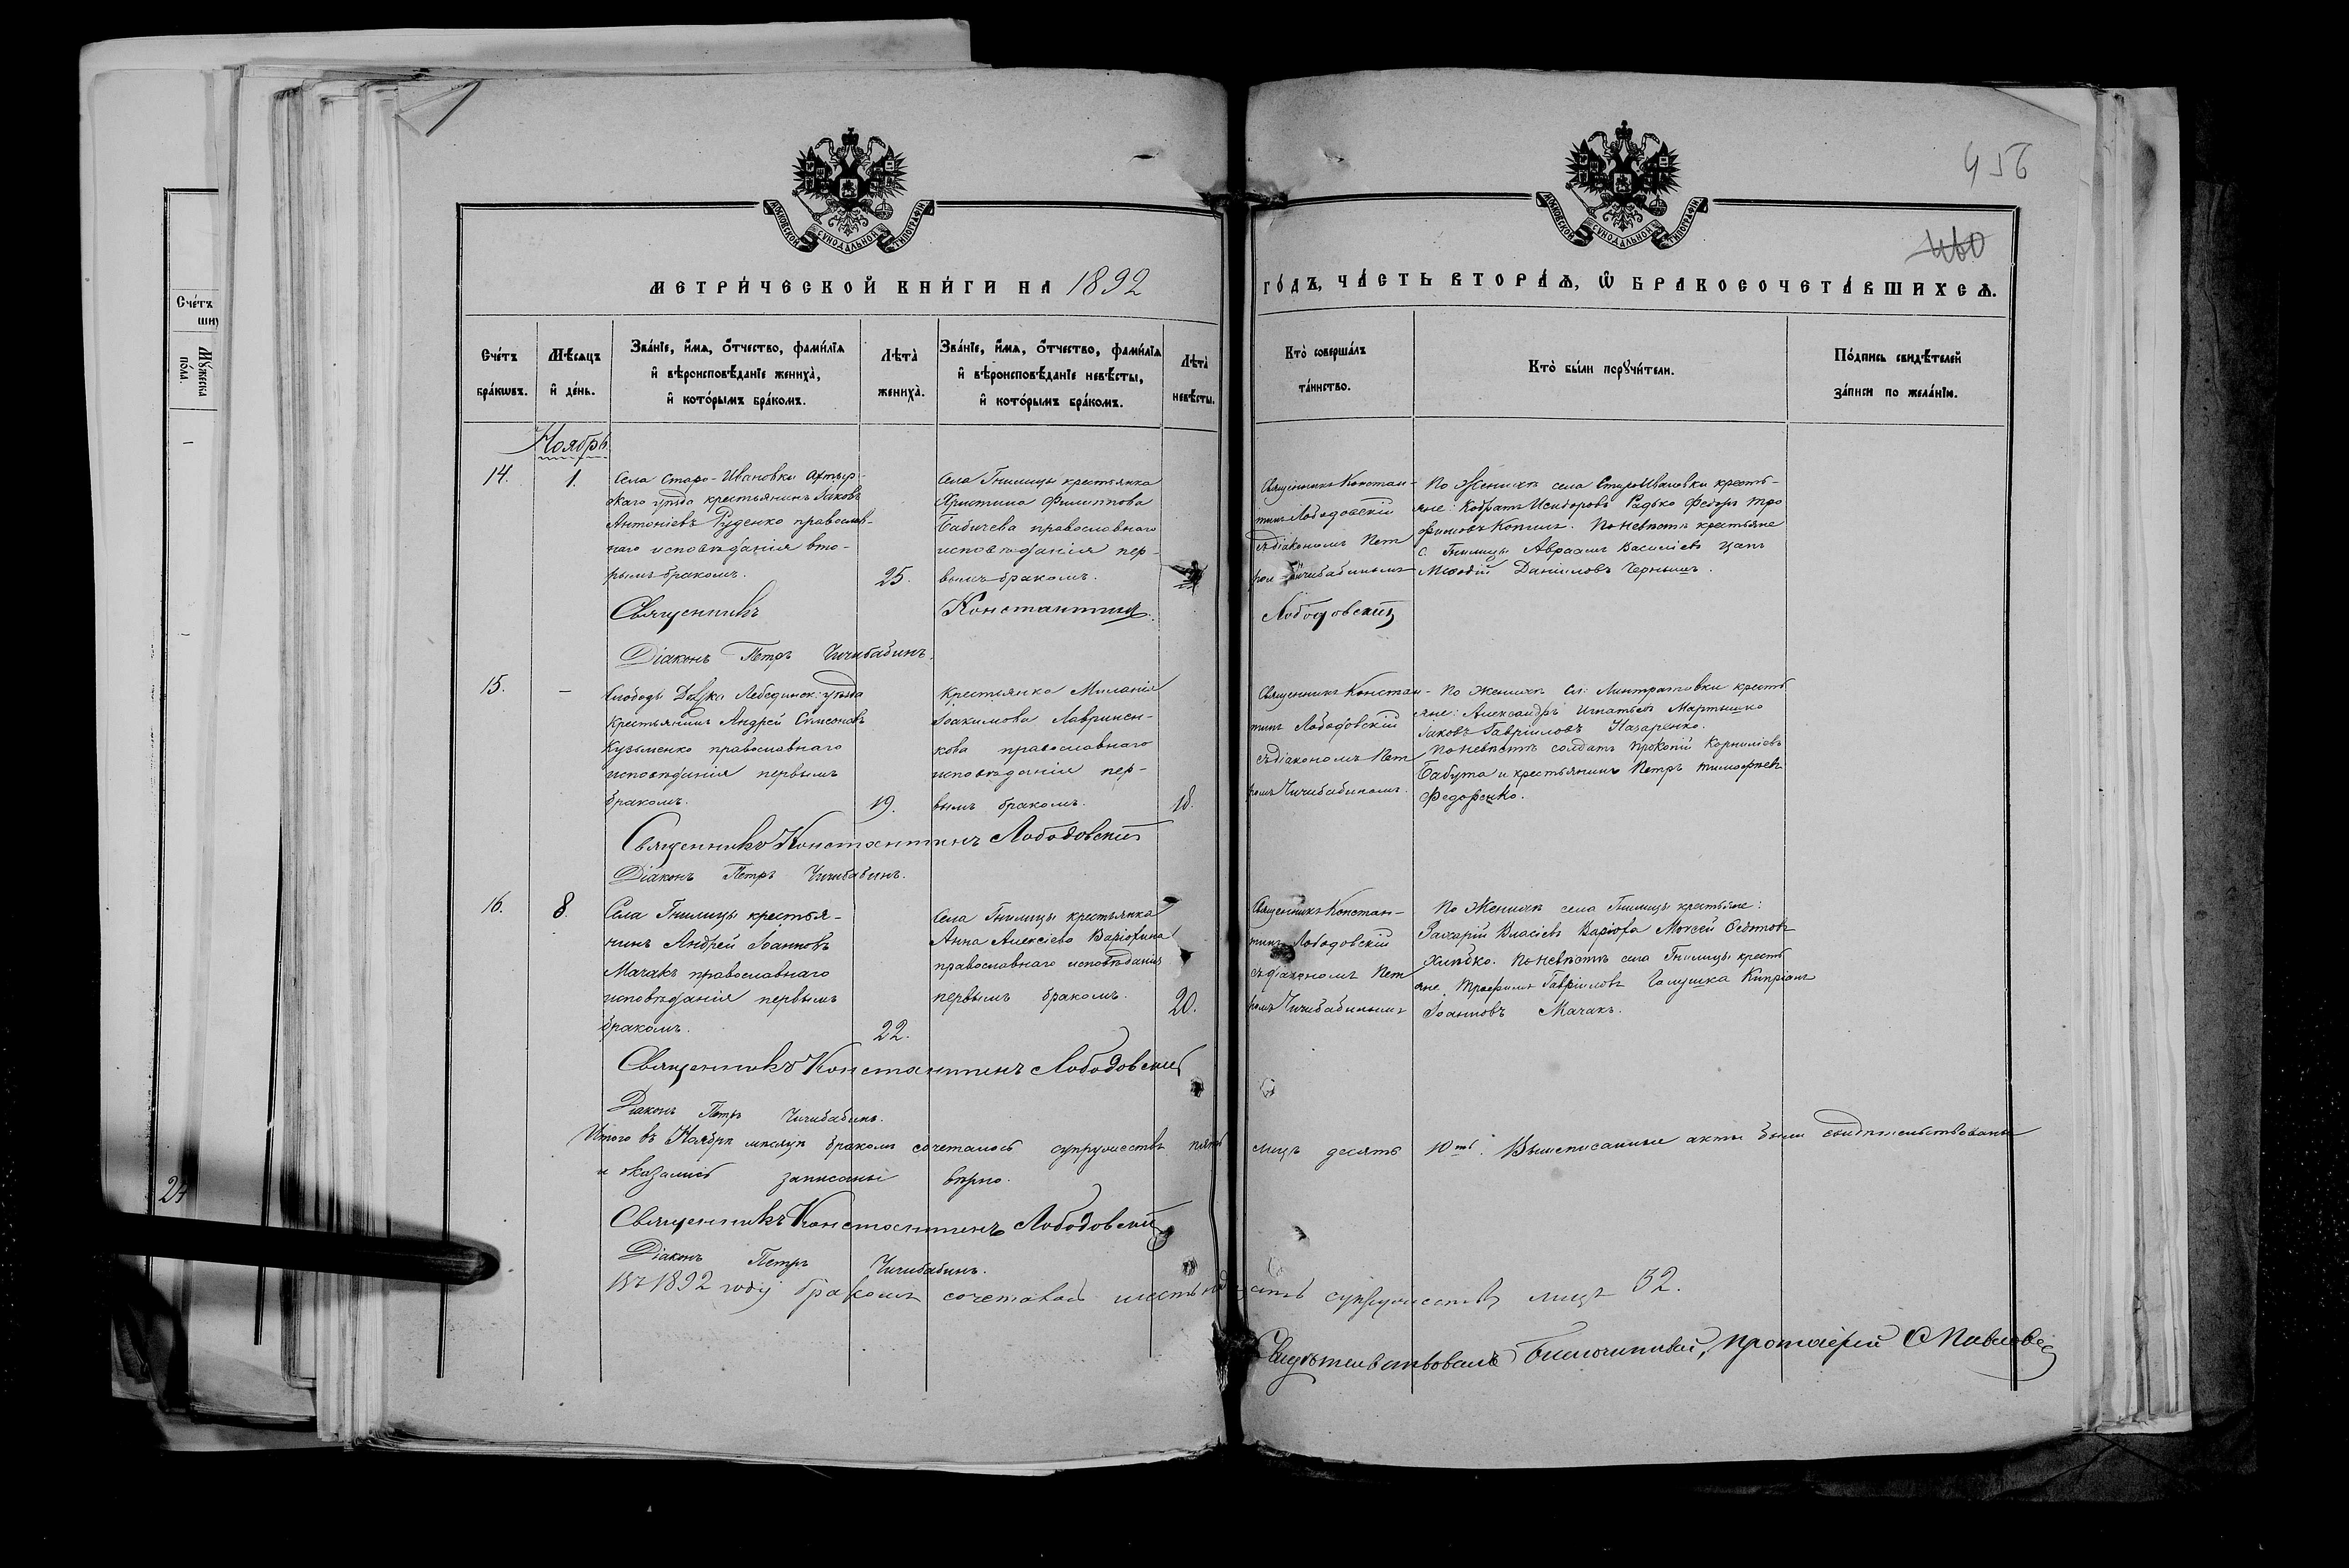 456
460
МОСКОВСКОЙ СУНОДАЛЬНОЙ ТИПОГРАФІИ
МОСКОВСКОЙ СУНОДАЛЬНОЙ ТИПОГРАФІИ
МЕТРИ́ЧЕСКОЙ КНИ́ГИ НА 1892 ГО́ДЪ, ЧА́СТЬ ВТОРА́Ѧ, Ѡ҆ БРАКОСОЧЕТА́ВШИХСѦ.
Сче́тъ
шну
Му́жеска
по́ла.
Сче́тъ
бра́кѡвъ.
Мѣ́сѧцъ
и҆ де́нь.
Зва́нїе, и҆́мѧ, ѻ҆́тчество, фами́лїѧ
и҆ вѣроисповѣ́данїе жениха̀,
и҆ кото́рымъ бра́комъ.
Лѣта̀
жениха̀.
Зва́нїе, и҆́мѧ, ѻ҆́тчество, фами́лїѧ
и҆ вѣроисповѣ́данїе невѣ́сты,
и҆ кото́рымъ бра́комъ.
Лѣта̀
невѣ́сты.
Кто̀ соверша́лъ
та́инство.
Кто̀ бы́ли порꙋчи́тели.
По́дпись свидѣ́телей
за́писи по жела́нїю.
Ноябрь
14.
1.
Села Старо-Ивановки Ахтыр-
скаго уѣзда крестьянинъ Іаковъ
Антоніевъ Руденко православ-
наго исповѣданія вто-
рымъ бракомъ.
25.
Села Гнилицы крестьянка
Христина Филиппова
Бабичева православнаго
исповѣданія пер-
вымъ бракомъ.
Священникъ Констан-
тинъ Лободовскій
съ діакономъ Пет
ромъ Чичибабинымъ
По Женихѣ села СтароИвановки кресть-
яне: Кодратъ Исидоровъ Радько Ѳедоръ Тро
фимовъ Копил. По невѣстѣ крестьяне
с. Гнилицы Авраамъ Василіевъ Цапъ
Меѳодій Даніиловъ Чернышъ.
Священникъ Константинъ Лободовскій
Діаконъ Петръ Чичибабинъ.
15.
—
Слободы Лебединск: уѣзда
Крестьянинъ Андрей Симеоновъ
Кузьменко православнаго
исповѣданія первымъ
бракомъ.
19.
Крестьянка Миланія
Іоакимова Лавринен-
кова православнаго
исповѣданія пер-
вымъ бракомъ.
18.
Священникъ Констан-
тинъ Лободовскій
съ діакономъ Пет
ромъ Чичибабинымъ.
По Женихѣ Сл: кресть
яне: Александръ Игнатьевъ Мартышко
Іаковъ Гавріиловъ Назаренко.
По невѣстѣ солдатъ Прокопій Корниліевъ
Бабута и крестьянинъ Петръ Тимоѳеевъ
Федоренко.
Священникъ Константинъ Лободовскій
Діаконъ Петръ Чичибабинъ.
16.
8.
Села Гнилицы крестья-
нинъ Андрей Іоанновъ
Мачакъ православнаго
исповѣданія первымъ
бракомъ.
22.
Села Гнилицы крестьянка
Анна Алексіева
православнаго исповѣданія
первымъ бракомъ.
20.
Священникъ Констан-
тинъ Лободовскій
съ діакономъ Пет
ромъ Чичибабинымъ
По Женихѣ села Гнилицы крестьяне:
Захарій Власіевъ Моѵсей Ѳедотовъ
По невѣстѣ села Гнилицы кресть
яне Трофимъ Гавріиловъ Галушка Кипріанъ
Іоанновъ Мачакъ.
Священникъ Константинъ Лободовскій
Діаконъ Петръ Чичибабинъ.
Итого въ Ноябрѣ мѣсяцѣ бракомъ сочеталось супружествъ пять лицъ десять 10ть. Вышеписанные акты были свидѣтельствованы
и оказались записаны вѣрно.
Священникъ Константинъ Лободовскій
Діаконъ Петръ Чичибабинъ.
24
Въ 1892 году бракомъ сочеталось шестьнадцать супружествъ лицъ 32.
Свидѣтельствовалъ Благочинный, Протоіерей С Павловъ